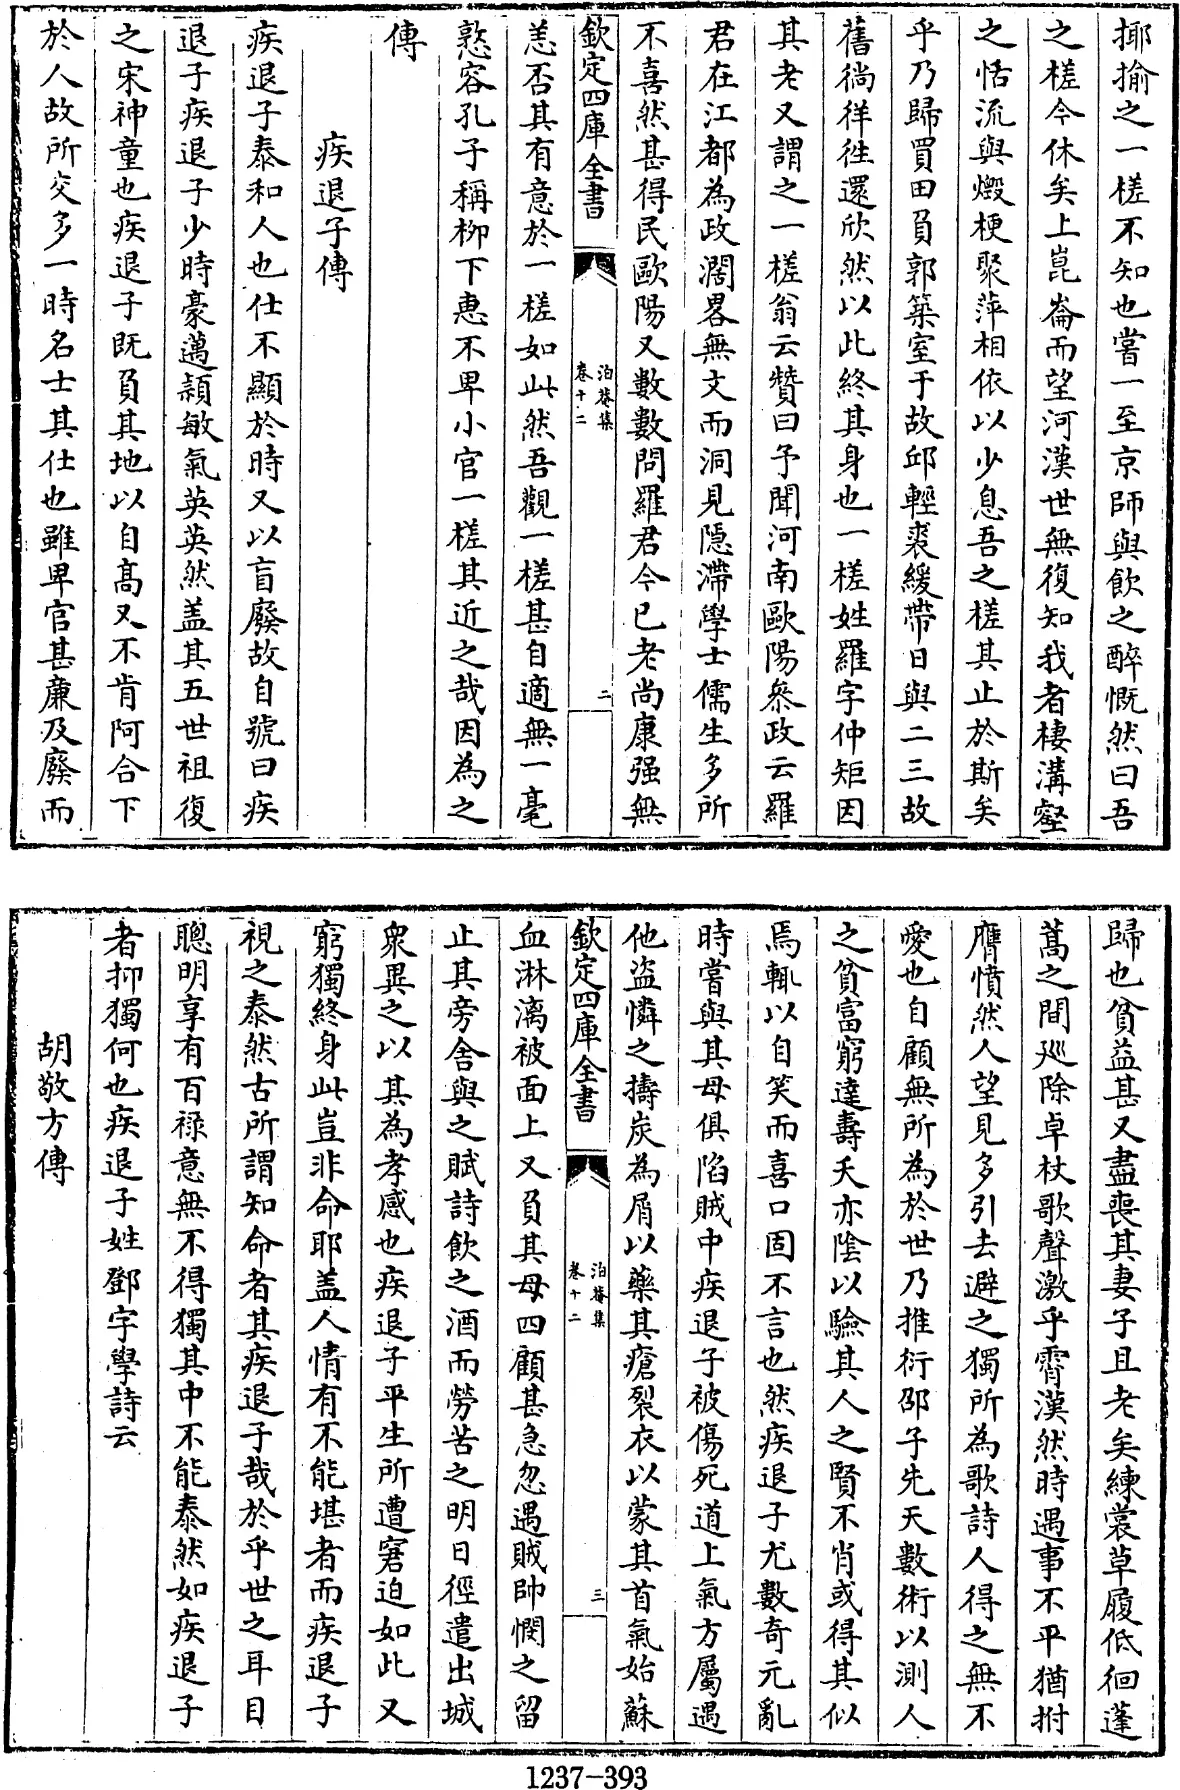 揶揄之一槎不知也嘗一至京師與飲之醉慨然曰吾
之槎今休矣上崑崙而望河漢世無復知我者棲溝壑
之恬流與燬梗聚萍相依以少息吾之槎其止於斯矣
乎乃歸買田負郭築室于故邱輕裘緩帶日與二三故
舊徜徉徃還欣然以此終其身也一槎姓羅字仲矩因
其老又謂之一槎翁云贊曰予聞河南歐陽叅政云羅
君在江都為政濶畧無文而洞見隱滯學士儒生多所
不喜然甚得民歐陽又數數問羅君今已老尚康强無
欽定四庫全書
泊菴集
卷十二
二
恙否其有意於一槎如此然吾觀一槎甚自適無一毫
憝容孔子稱栁下惠不卑小官一槎其近之哉因為之
傳
疾退子傳
疾退子泰和人也仕不顯於時又以盲廢故自號曰疾
退子疾退子少時豪邁頴敏氣英英然盖其五世祖復
之宋神童也疾退子既負其地以自髙又不肯阿合下
於人故所交多一時名士其仕也雖卑官甚廉及廢而
歸也貧益甚又盡喪其妻子且老矣練裳草履低徊蓬
蒿之間廵除卓杖歌聲激乎霄漢然時遇事不平猶拊
膺憤然人望見多引去避之獨所為歌詩人得之無不
愛也自顧無所為於世乃推衍邵子先天數術以測人
之貧富窮達壽夭亦陰以驗其人之賢不肖或得其似
焉輒以自笑而喜口固不言也然疾退子尤數奇元亂
時嘗與其母俱陷賊中疾退子被傷死道上氣方屬遇
他盜憐之擣炭為屑以藥其瘡裂衣以蒙其首氣始蘇
欽定四庫全書
泊菴集
卷十二
三
血淋漓被面上又負其母四顧甚急忽遇賊帥憫之留
止其旁舍與之賦詩飲之酒而勞苦之明日徑遣出城
衆異之以其為孝感也疾退子平生所遭窘迫如此又
窮獨終身此豈非命耶盖人情有不能堪者而疾退子
視之泰然古所謂知命者其疾退子哉於乎世之耳目
聰明享有百祿意無不得獨其中不能泰然如疾退子
者抑獨何也疾退子姓鄧字學詩云
胡敬方傳
1237-393